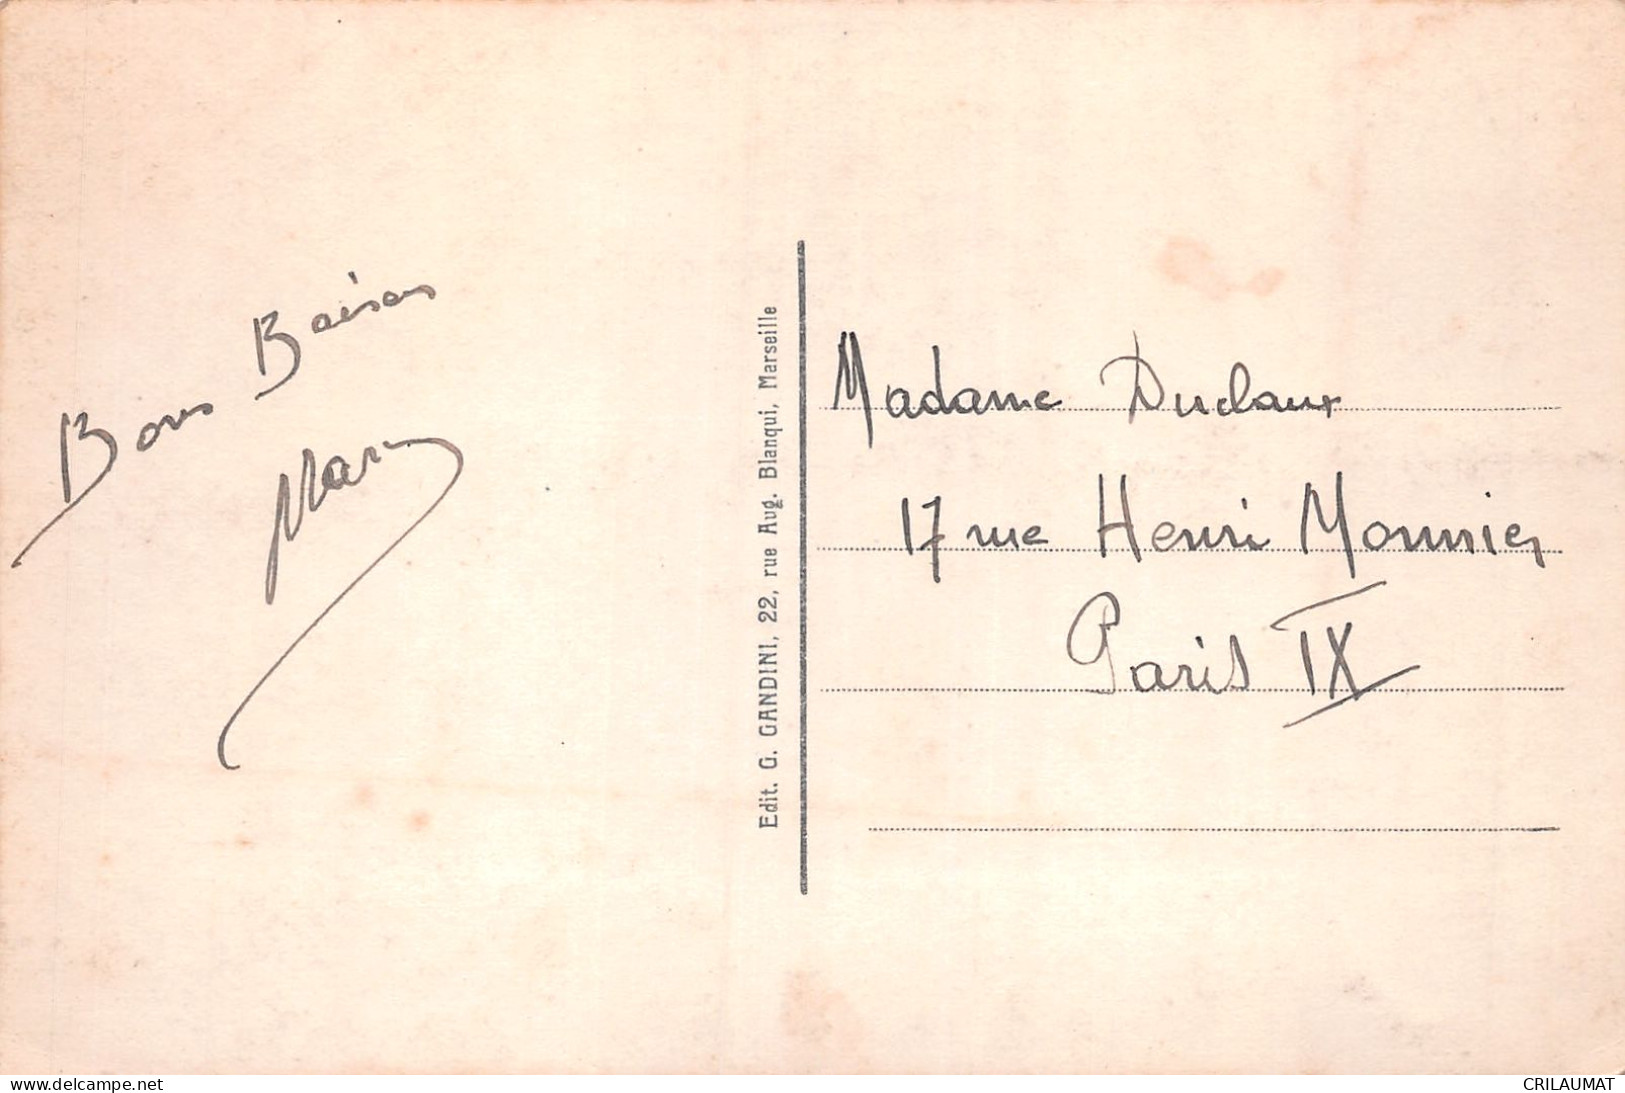 Bons Baisers
Edit. G. GANDINI, 22, rue Aug. Blanqui, Marseille
Madame Duclaux
17 rue Henri Monnier
Paris IX
delcampe.net
CRILAUMAT